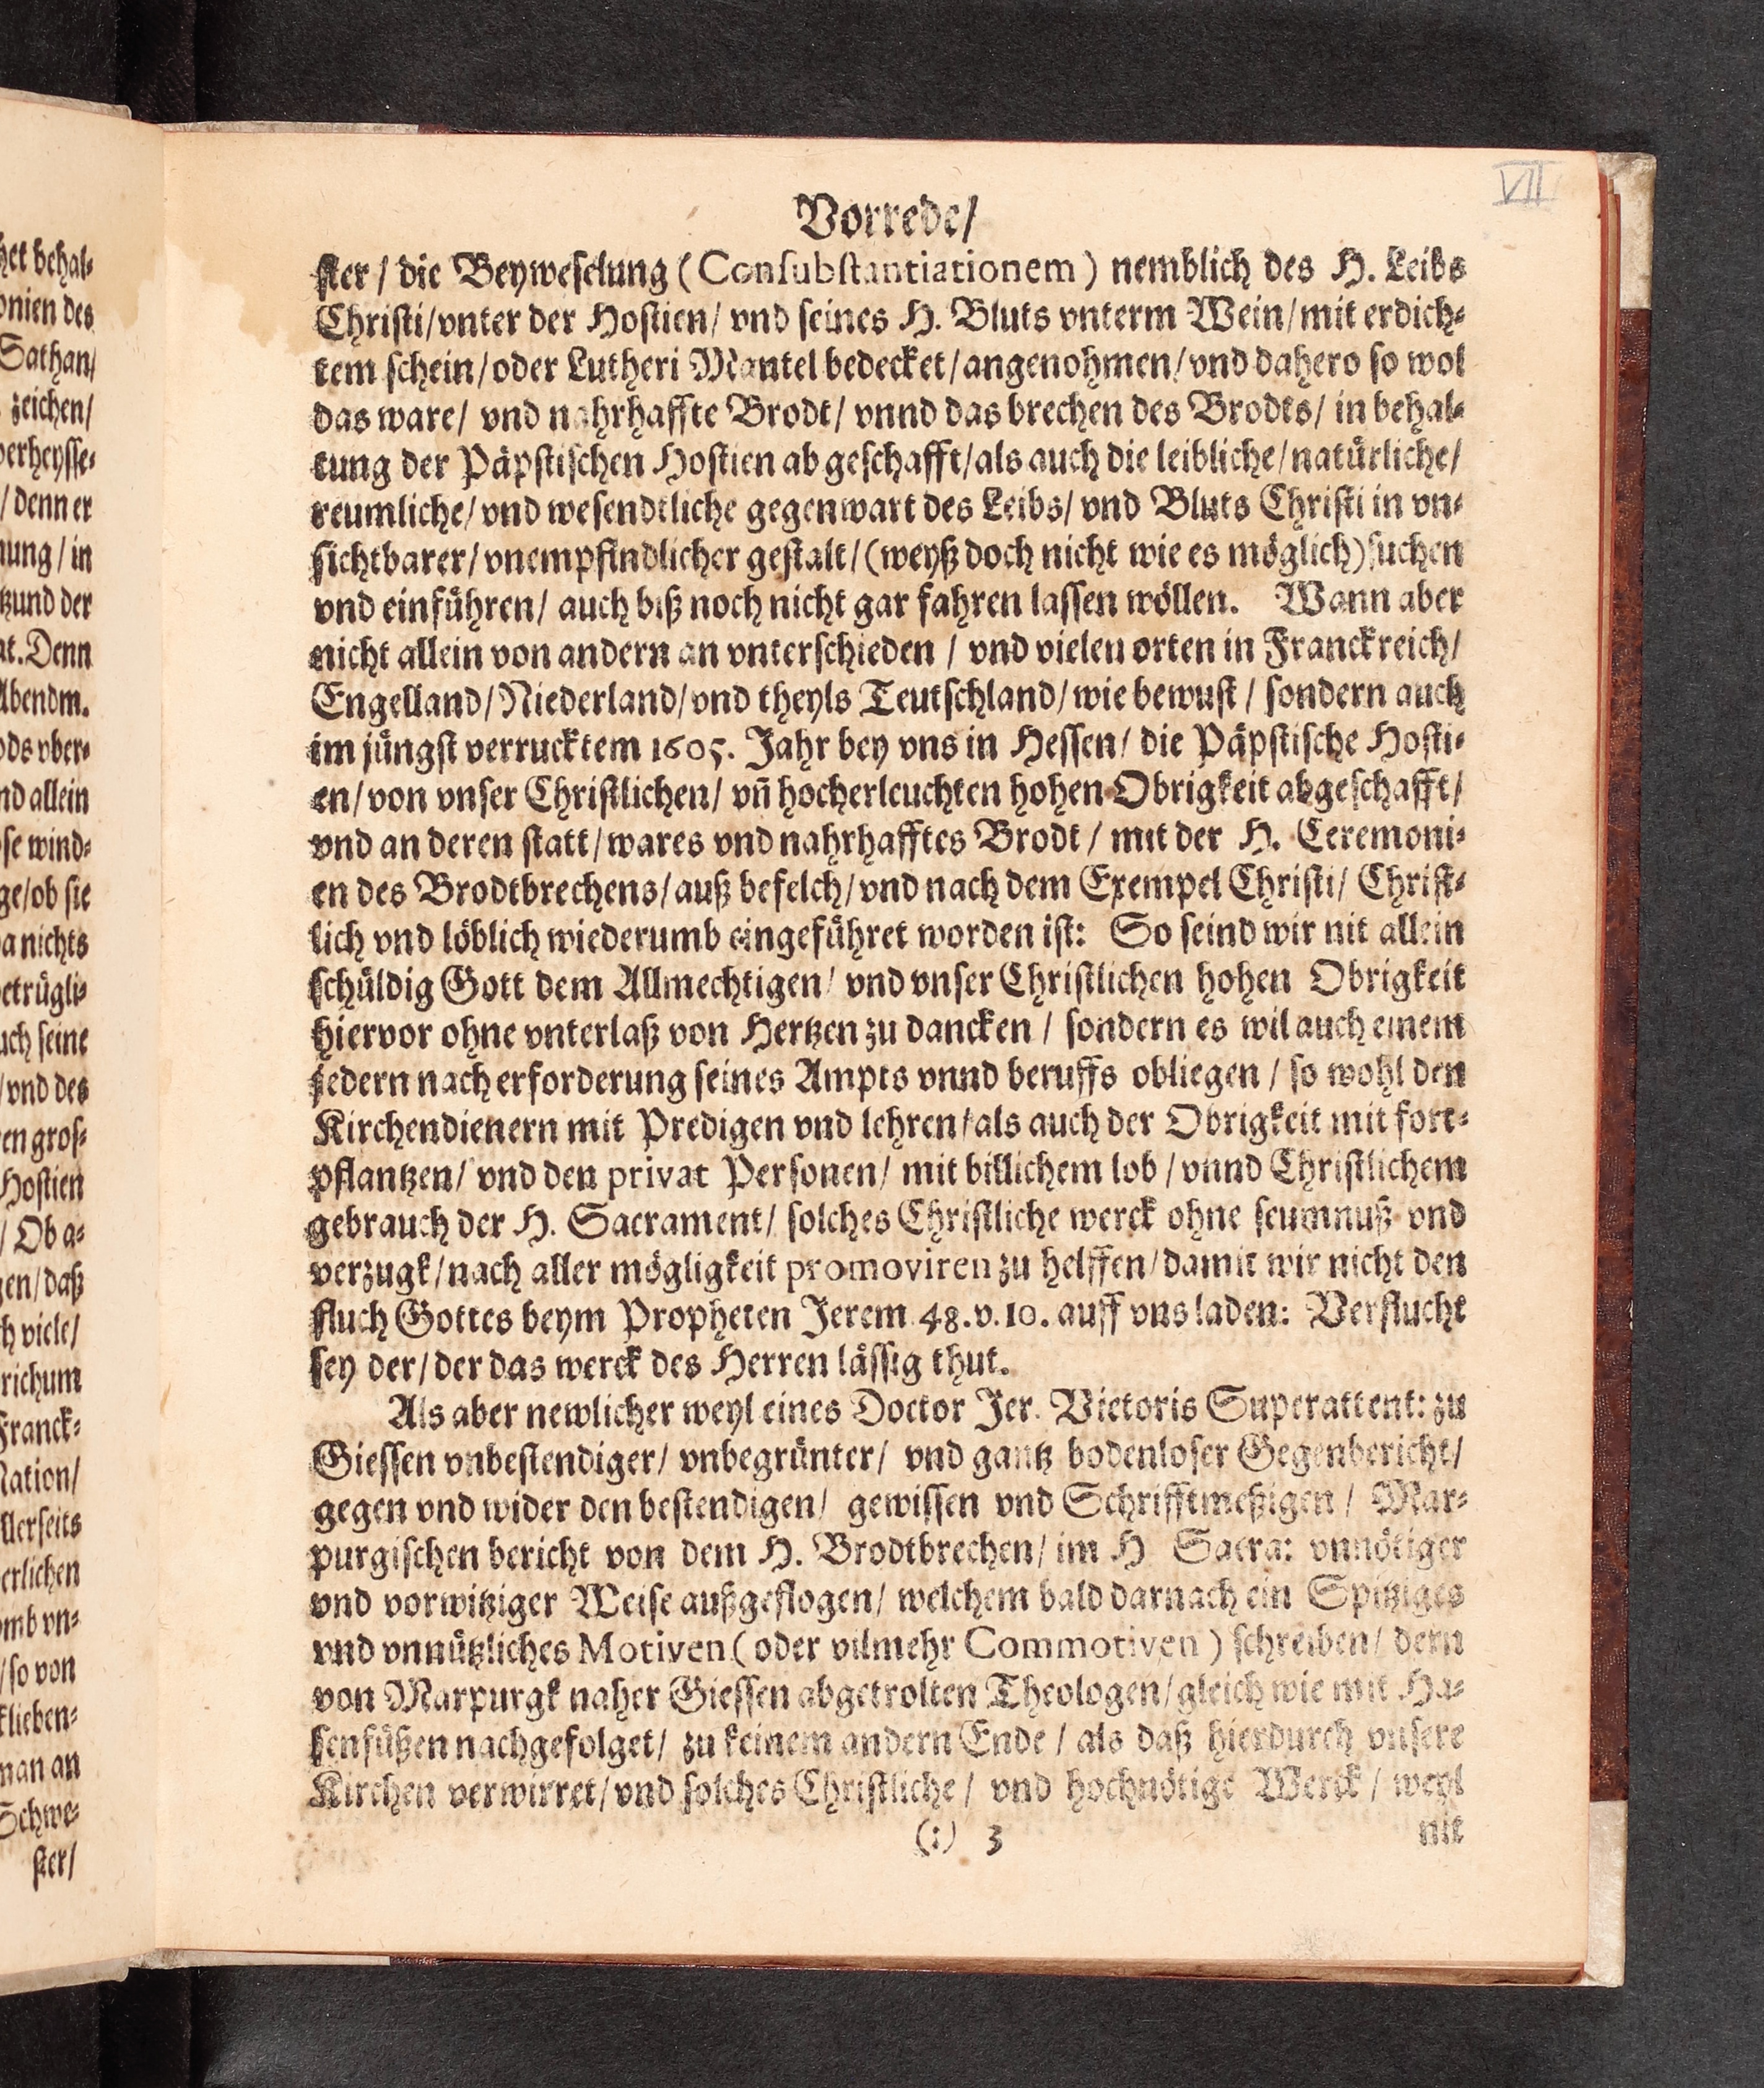 VII
Vorrede/
ster / die Beyweselung (Consubstantiationem) nemblich des H. Leibs
Christi/vnter der Hostien/ vnd seines H. Bluts vnterm Wein/mit erdich-
tem schein/oder Lutheri Mantel bedecket/angenohmen/vnd dahero so wol
das ware/ vnd nahrhaffte Brodt/ vnnd das brechen des Brodts/ in behal-
tung der Päpstischen Hostien abgeschafft/als auch die leibliche/natürliche/
reumliche/vnd wesendtliche gegenwart des Leibs/ vnd Bluts Christi in vn-
sichtbarer/vnempfindlicher gestalt/(weyß doch nicht wie es möglich)suchen
vnd einführen/ auch biß noch nicht gar fahren lassen wöllen. Wann aber
nicht allein von andern an vnterschieden / vnd vielen orten in Franckreich/
Engelland/Niederland/vnd theyls Teutschland/wie bewust / sondern auch
im jüngst verrucktem 1605. Jahr bey vns in Hessen/ die Päpstische Hosti-
en/von vnser Christlichen/ vñ hocherleuchten hohen Obrigkeit abgeschafft/
vnd an deren statt/wares vnd nahrhafftes Brodt / mit der H. Ceremoni-
en des Brodtbrechens/auß befelch/vnd nach dem Exempel Christi/ Christ-
lich vnd löblich wiederumb eingeführet worden ist: So seind wir nit allein
schüldig Gott dem Allmechtigen/ vnd vnser Christlichen hohen Obrigkeit
hiervor ohne vnterlaß von Hertzen zu dancken / sondern es wil auch einem
jedern nach erforderung seines Ampts vnnd beruffs obliegen / so wohl den
Kirchendienern mit Predigen vnd lehren/als auch der Obrigkeit mit fort-
pflantzen/ vnd den privat Personen/ mit billichem lob / vnnd Christlichem
gebrauch der H. Sacrament/ solches Christliche werck ohne seumnuß vnd
verzugk/nach aller mögligkeit promoviren zu helffen/damit wir nicht den
fluch Gottes beym Propheten Jerem 48.v.10. auff vns laden: Verflucht
sey der/der das werck des Herren lässig thut.
Als aber newlicher weyl eines Doctor Jer. Vietoris Superattent: zu
Giessen vnbestendiger/ vnbegrünter/ vnd gantz bodenloser Gegenbericht/
gegen vnd wider den bestendigen/ gewissen vnd Schrifftmeßigen / Mar-
purgischen bericht von dem H. Brodtbrechen/ im H Sacra: vnnötiger
vnd vorwitziger Weise außgeflogen/ welchem bald darnach ein Spitziges
vnd vnnützliches Motiven (oder vilmehr Commotiven) schreiben/ dern
von Marpurgk naher Giessen abgetrolten Theologen/gleich wie mit Ha-
senfüßen nachgefolget/ zu keinem andern Ende / als daß hierdurch vnsere
Kirchen verwirret/vnd solches Christliche / vnd hochnötige Werck / weyl
(:) 3 nit